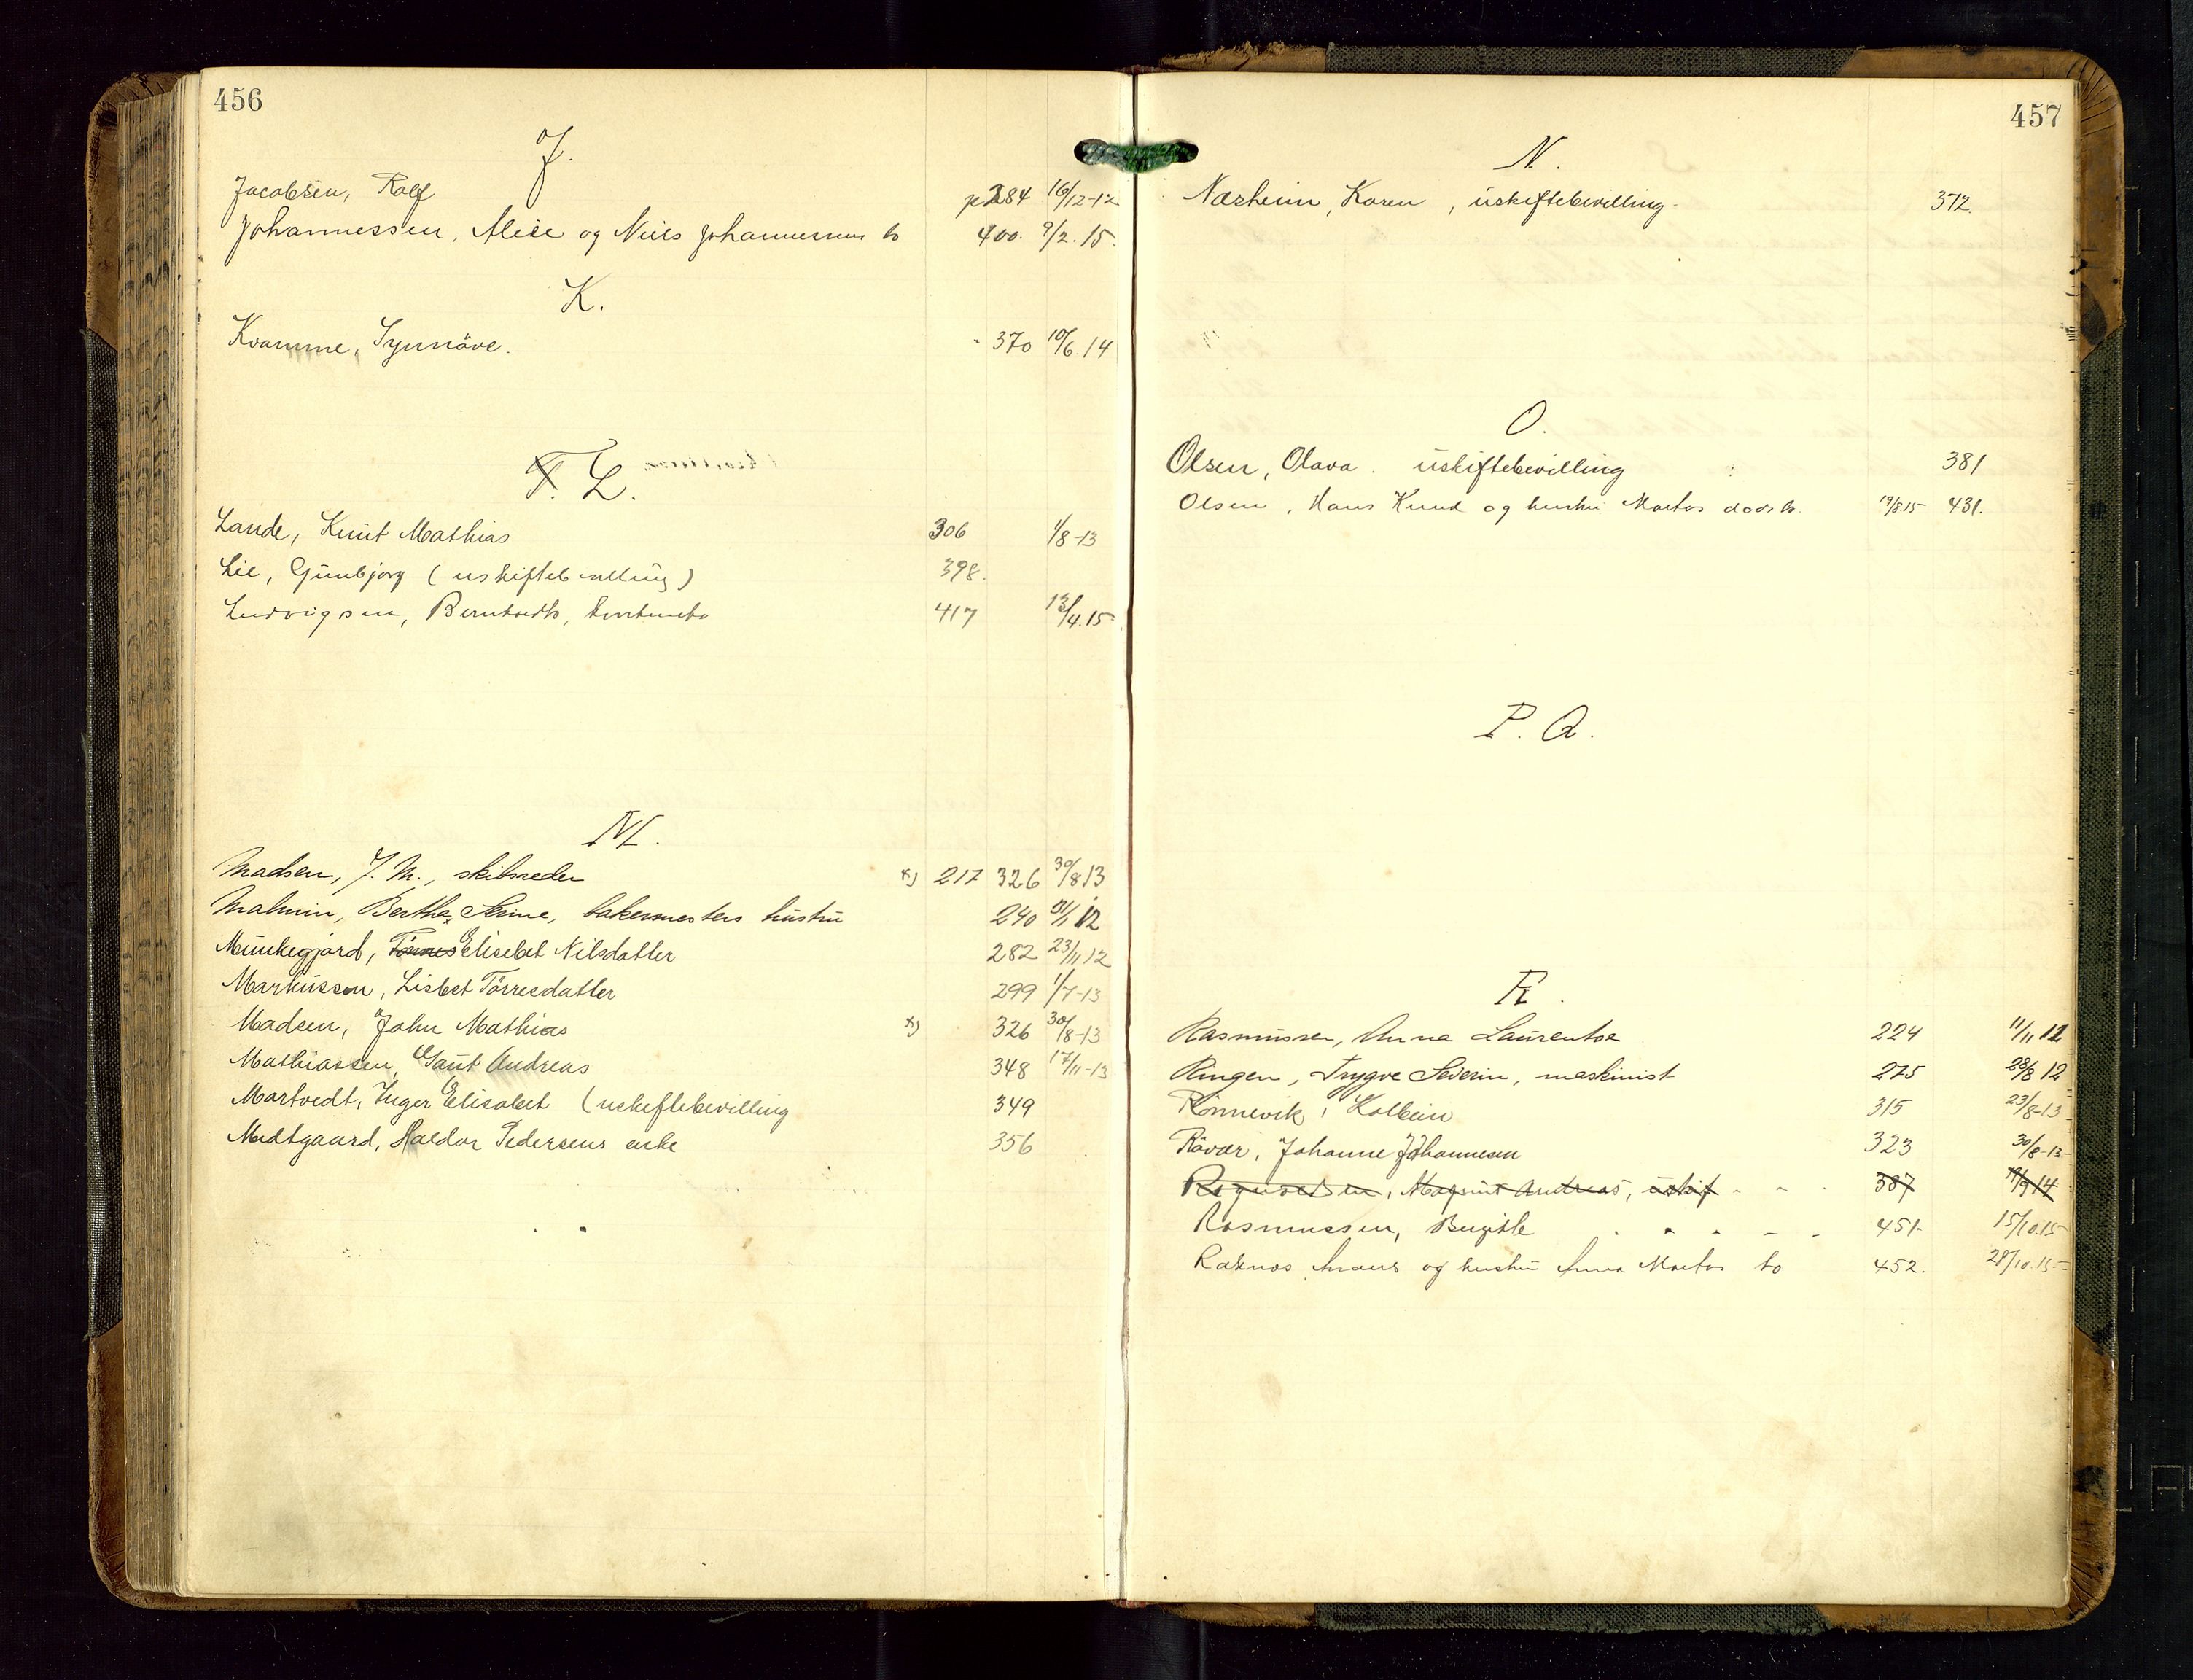 456
J.
Jacobsen, Rolf p 284 16/12-12
Johannessen, Alise og Niels Johannesens bo 400. 9/2. 15.
K.
Kvamme, Synnöve. 370 10/6. 14
F. L.
Lande, Knut Mathias 306 1/8-13
Lie, Gunbjorg (uskiftebevilling) 398.
Ludvigsen, 417 13/4. 15
M.
Madsen, J. M., skibsreder x) 217 326 30/8 13
Malmin, Bertha Serine, bakermesters hustru 240 31/1 12
Munkegjord, Tönnes Elisebet Nilsdatter 282 23/11 12
Markussen, Lisbet Törresdatter 299 1/7-13
Madsen, John Mathias x) 326 30/8-13
Mathiassen, Gaut Andreas 348 17/11-13
Martvedt, Inger Elisabet (uskiftebevilling 349
Midtgaard, Haldor Pedersens enke 356
457
N.
Nærheim, Karen, uskiftebevilling 372.
O.
Olsen, Olava. uskiftebevilling 381
Olsen, Hans Knud og hustru Martas dødsbo. 19/8 15 431.
P. Q.
R.
Rasmussen, Anna Laurentse 224 11/11 12
Ringen, Trygve Severin, maskinist 275 28/8 12
Rönnevik, Kolbein 315 23/8-13
Rövær, Johanne Johannesen 323 30/8-13
Magnus Andreas, uskif - - 387 19/9 14
Rasmussen, Birgitte 451 15/10. 15
Raknes og hustru Anna Martas bo 452. 28/10. 15